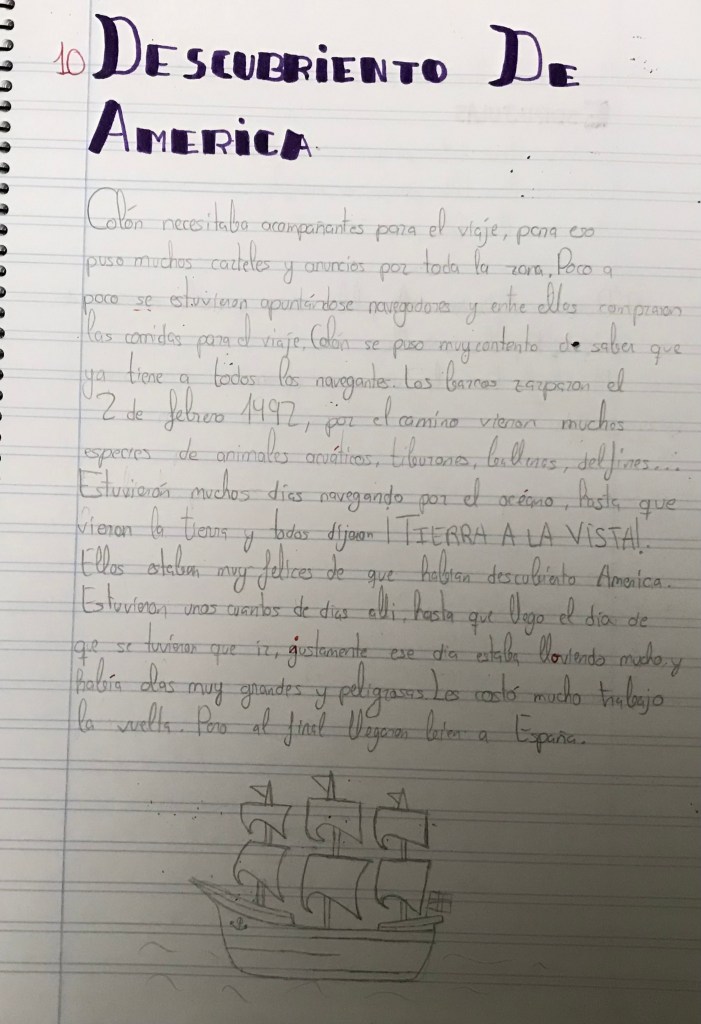 10 DESCUBRIENTO DE
AMERICA.
Colón necesitaba acompañantes para el viaje, para eso
puso muchos carteles y anuncios por toda la zona, Poco a
poco se estuvieron apuntándose navegadores y entre ellos compraron
las comidas para el viaje, Colón se puso muy contento de saber que
ya tiene a todos los navegantes. Los barcos zarparon el
2 de febrero 1492, por el camino vieron muchos
especies de animales acuáticos, tiburones, ballenas, delfines...
Estuvierón muchos días navegando por el océano, hasta que
vieron la tierra y todos dijeron ¡TIERRA A LA VISTA!.
Ellos estaban muy felices de que habían descubierto America.
Estuvieron unos cuantos de dias alli, hasta que llego el día de
que se tuvieron que ir, justamente ese dia estaba lloviendo mucho y
había olas muy grandes y peligrosas Les costó mucho trabajo
la vuelta. Pero al final llegaron a España.